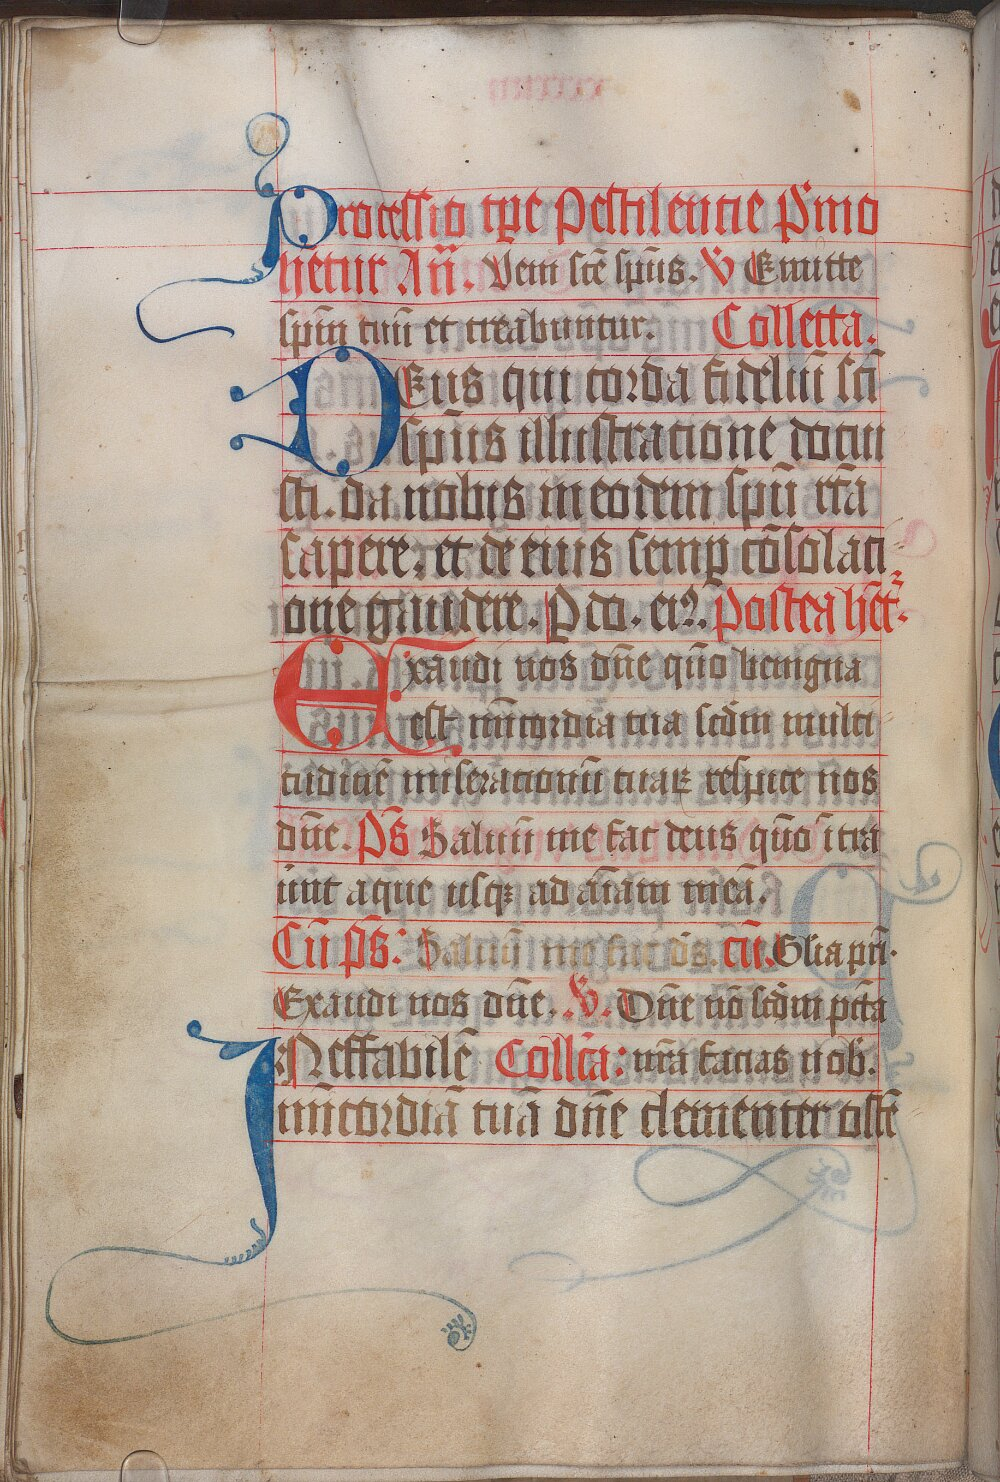 Processio tp̄e Pestilentie P'mo
hr̄etur An̄. Veni sc̄te sp̄us. V Emitte
sp̄m tuū et creabuntur. Collecta.
DEus qui corda fideliū sc̄i
sp̄us illustratione docui
sti. da nobis in eodem spū rc̄ta
sapere. et de eius semp cōsolati
one gaudere. P do. ei9. Postea hēt᷑.
Exaudi nos dn̄e qm̄o benigna
est mīcordia tua scd̄m multi
tudinē miserationū tuaꝝ respice nos
dn̄e. Ps̄ Saluū me fac deus qm̄o ītra
ūnt aque usqꝫ ad aīam meā.
Cū ps̄. Saluū me fac ds̄. cū. Gl̄ia pr̄i.
Exaudi nos dn̄e. V. Dn̄e nō scd̄m pc̄ta
INeffabilē Coll̄cta: nr̄a facias nob.
mīcordiā tuā dn̄e clementer oste